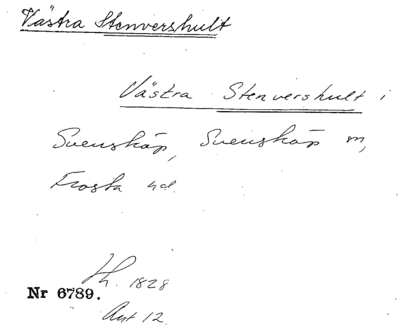 Västra Stenvershult
Västra Stenvershult i
Svensköp, Svensköp m,
Frosta hd.
Lh. 1828
Nr 6789.
Avt 12